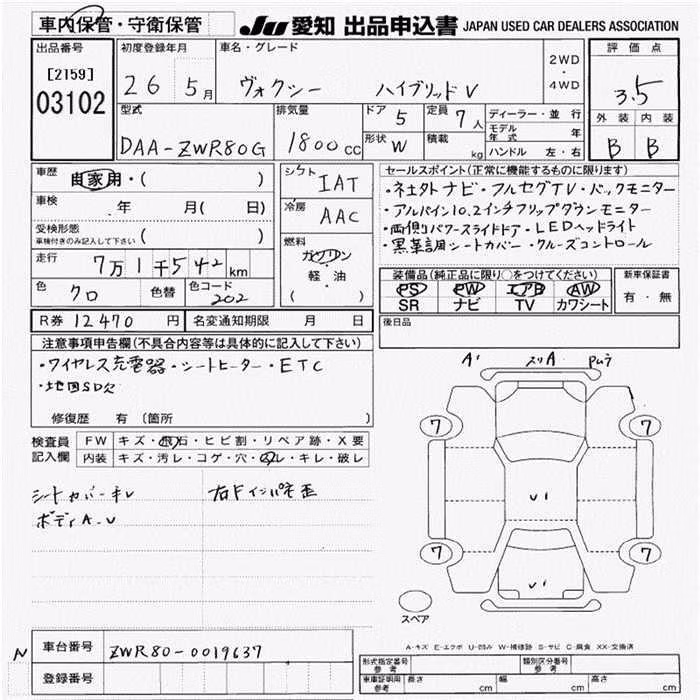 車内保管・守衛保管 JU 愛知 出品申込書 JAPAN USED CAR DEALERS ASSOCIATION
出品番号 [2159] 03102
初度登録年月 26 5月
車名・グレード ヴォクシー ハイブリッドV
2WD・4WD
評価点 3.5
外装 内装
B B
型式 DAA-ZWR80G
排気量 1800cc
ドア 5
形状 W
定員 7人
積載 kg
ディーラー・並行
モデル年式 年
ハンドル 左・右
車歴 自家用・( )
車検 . 年 月( 日)
受検形態
車検付きのみ記入して下さい ( )
走行 7万1千542km
色 クロ 色替 色コード 202
シフト IAT
冷房 AAC
燃料
ガソリン
軽・油
( )
セールスポイント(正常に機能するものに限ります)
・ネ土外ナビ・フルセグTV・バックモニター
・アルパイン10.2インチフリップダウンモニター
・両側パワースライドドア・LEDヘッドライト
・黒革調シートカバー・クルーズコントロール
装備品(純正品に限り○をつけてください)
PS PW エアB AW
SR ナビ TV カワシート
新車保証書
有・無
R券 12470 円 名変通知期限 月 日
後日品
注意事項申告欄(不具合内容等は具体的に記入して下さい)
・ワイヤレス充電器・シートヒーター・ETC
・地図SD欠
修復歴 有 (箇所 )
検査員記入欄
FW キズ・飛石・ヒビ割・リペア跡・X要
内装 キズ・汚レ・コゲ・穴・スレ・キレ・破レ
ボディA.U
A'
スリA
7 7
U1
7 7
U1
スペア
A-キズ E-エクボ U-凹み W-補修跡 S-サビ C-腐食 XX-交換済
N 車台番号 ZWR80-0019637
登録番号
形式指定番号参考 類別区分番号参考
車庫証明用参考 長さ cm 幅 cm 高さ cm